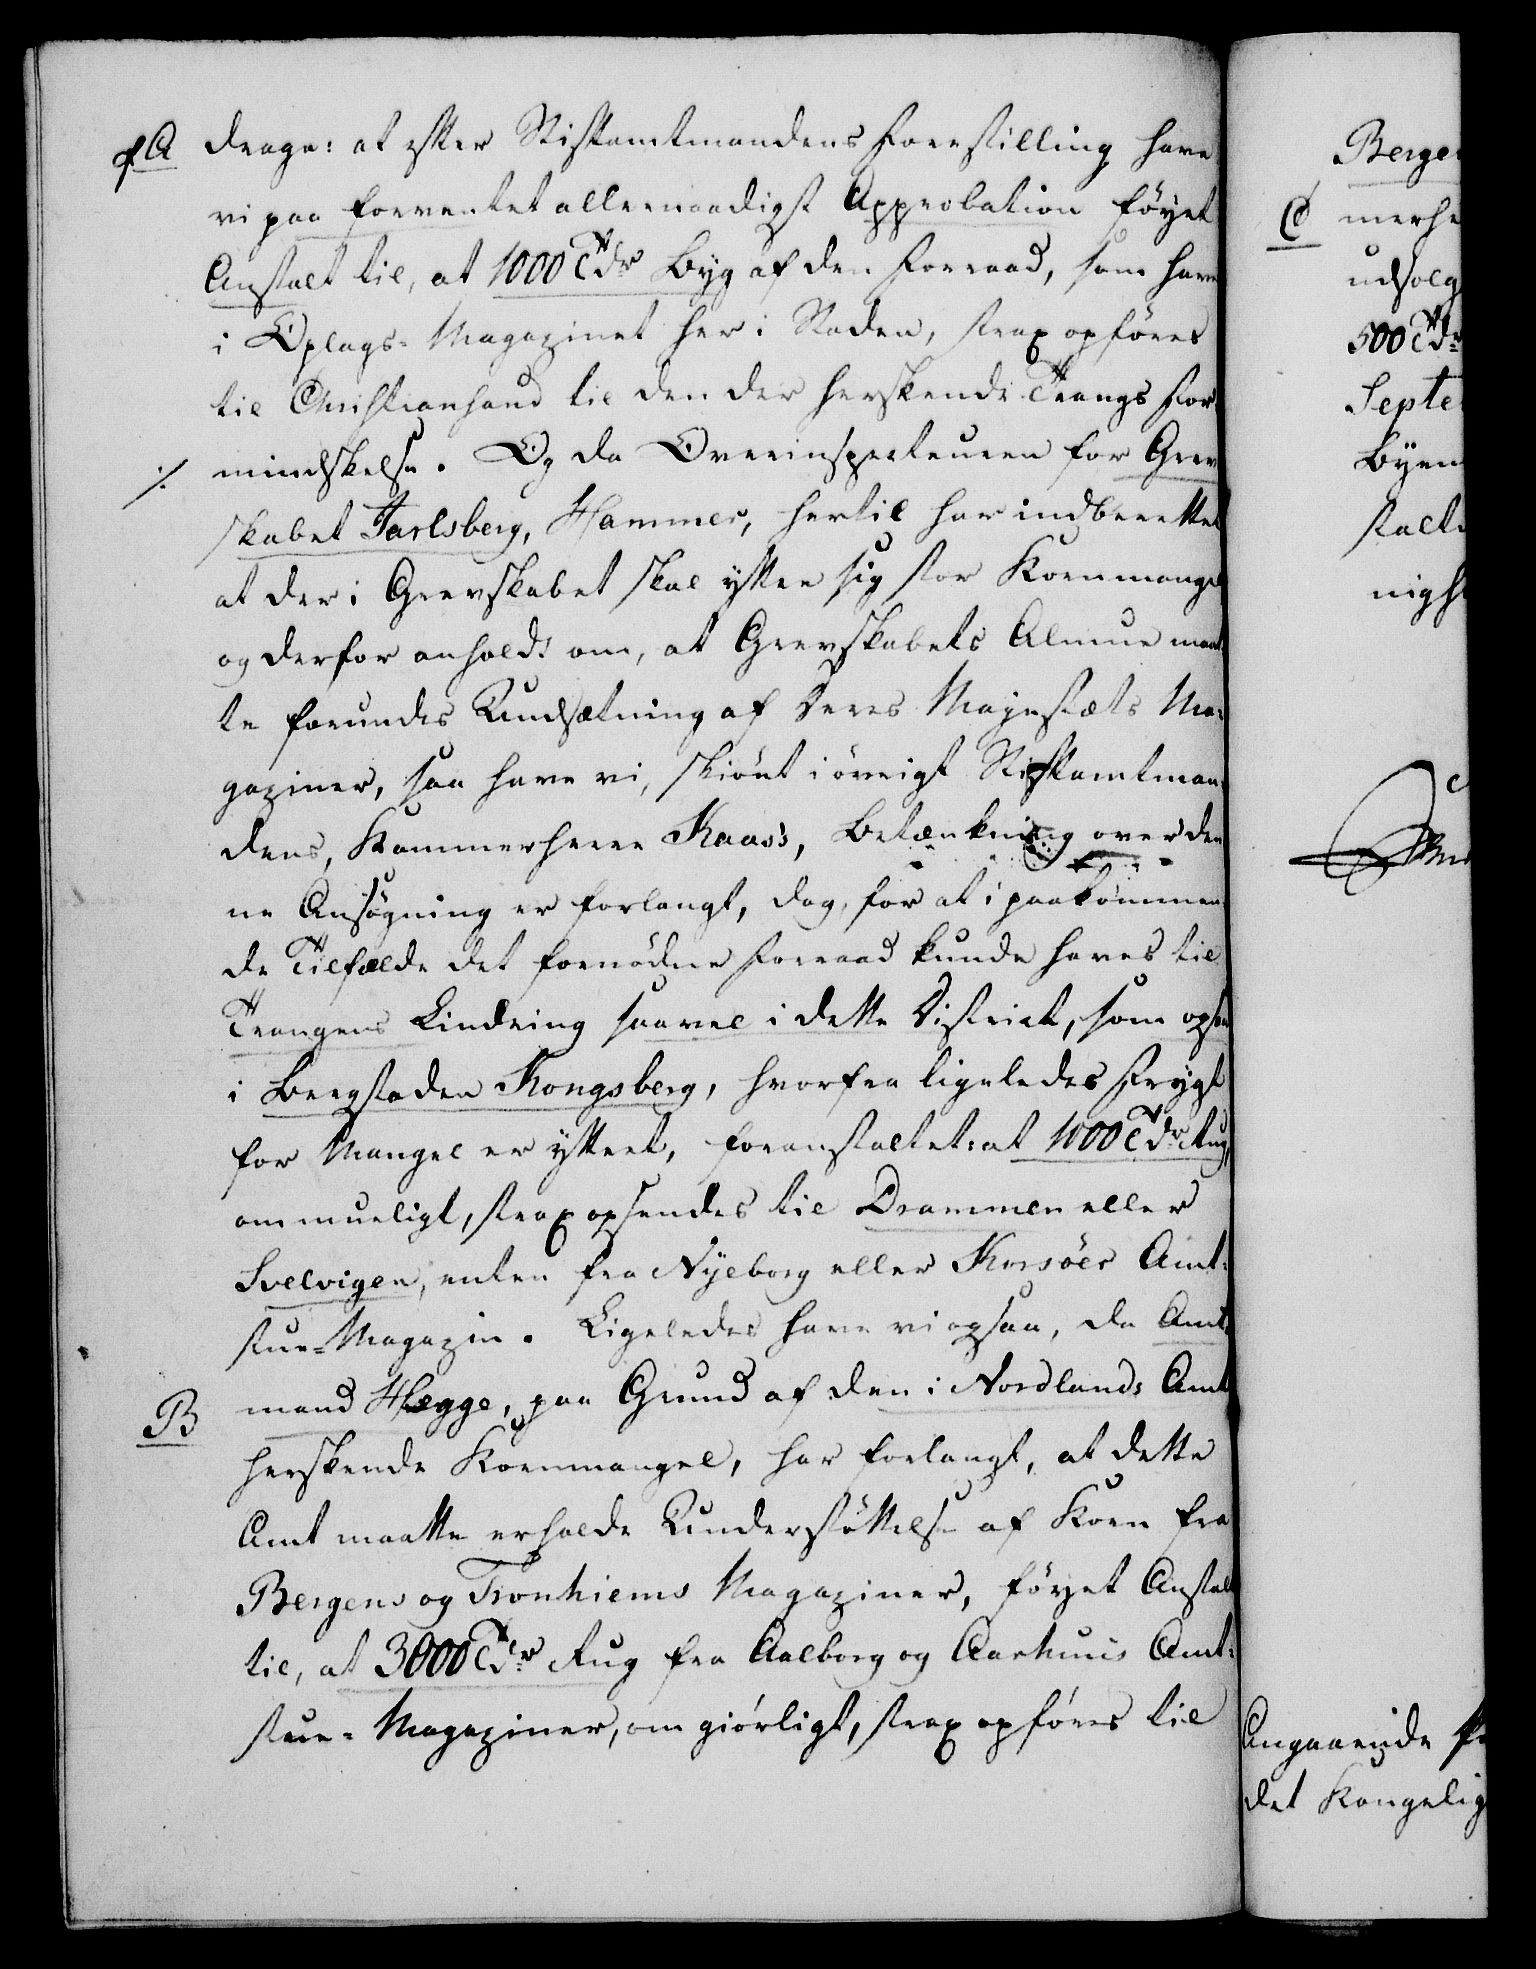 A drage: at efter Stiftamtmandens Forestilling have
vi paa forventet allernaadigst Approbation føyet
Anstalt til, at 1000 Tdr Byg af den Forraad, som haves
i Oplags-Magazinet her i Staden, strax opføres
til Christiansand til den der herskende Trangs For-
./. mindskelse. Og da Overinspecteuren for Grev
skabet Jarlsberg, Hammer, hertil har indberettet
at der i Grevskabet skal yttre sig stor Kornmangel
og derfor anholdt om, at Grevskabets Almue maat
te forundes Undsætning af Deres Majestæts Ma-
gaziner, saa have vi, skiønt i øvrigt Stiftamtman-
dens, Kammerherre Kaas's, Betænkning over den
ne Ansøgning er forlangt, dog, for at i paakommen
de Tilfælde det fornødne Forraad kunde haves til
Trangens Lindring saavel i dette District, som ogsaa
i Bergstaden Kongsberg, hvorfra ligeledes Frygt
for Mangel er yttret, foranstaltet: at 1000 Tdr Rug,
om mueligt, strax opsendes til Drammen eller
Svelvigen, enten fra Nyeborg eller Korsøer Amt-
stue-Magazin. Ligeledes have vi ogsaa, da Amt-
B mand Hegge, paa Grund af den i Nordlands Amt
herskende Kornmangel, har forlangt, at dette
Amt maatte erholde Understøttelse af Korn fra
Bergens og Tronhiems Magaziner, føyet Anstalt
til, at 3000 Tdr Rug fra Aalborg og Aarhuus Amt-
stue-Magaziner, om giørligt, strax opføres til
Berge
C merhe
udsolg
500 Tdr
Septe
Byen
stalte
nigh
Angaaende
det Kongelig